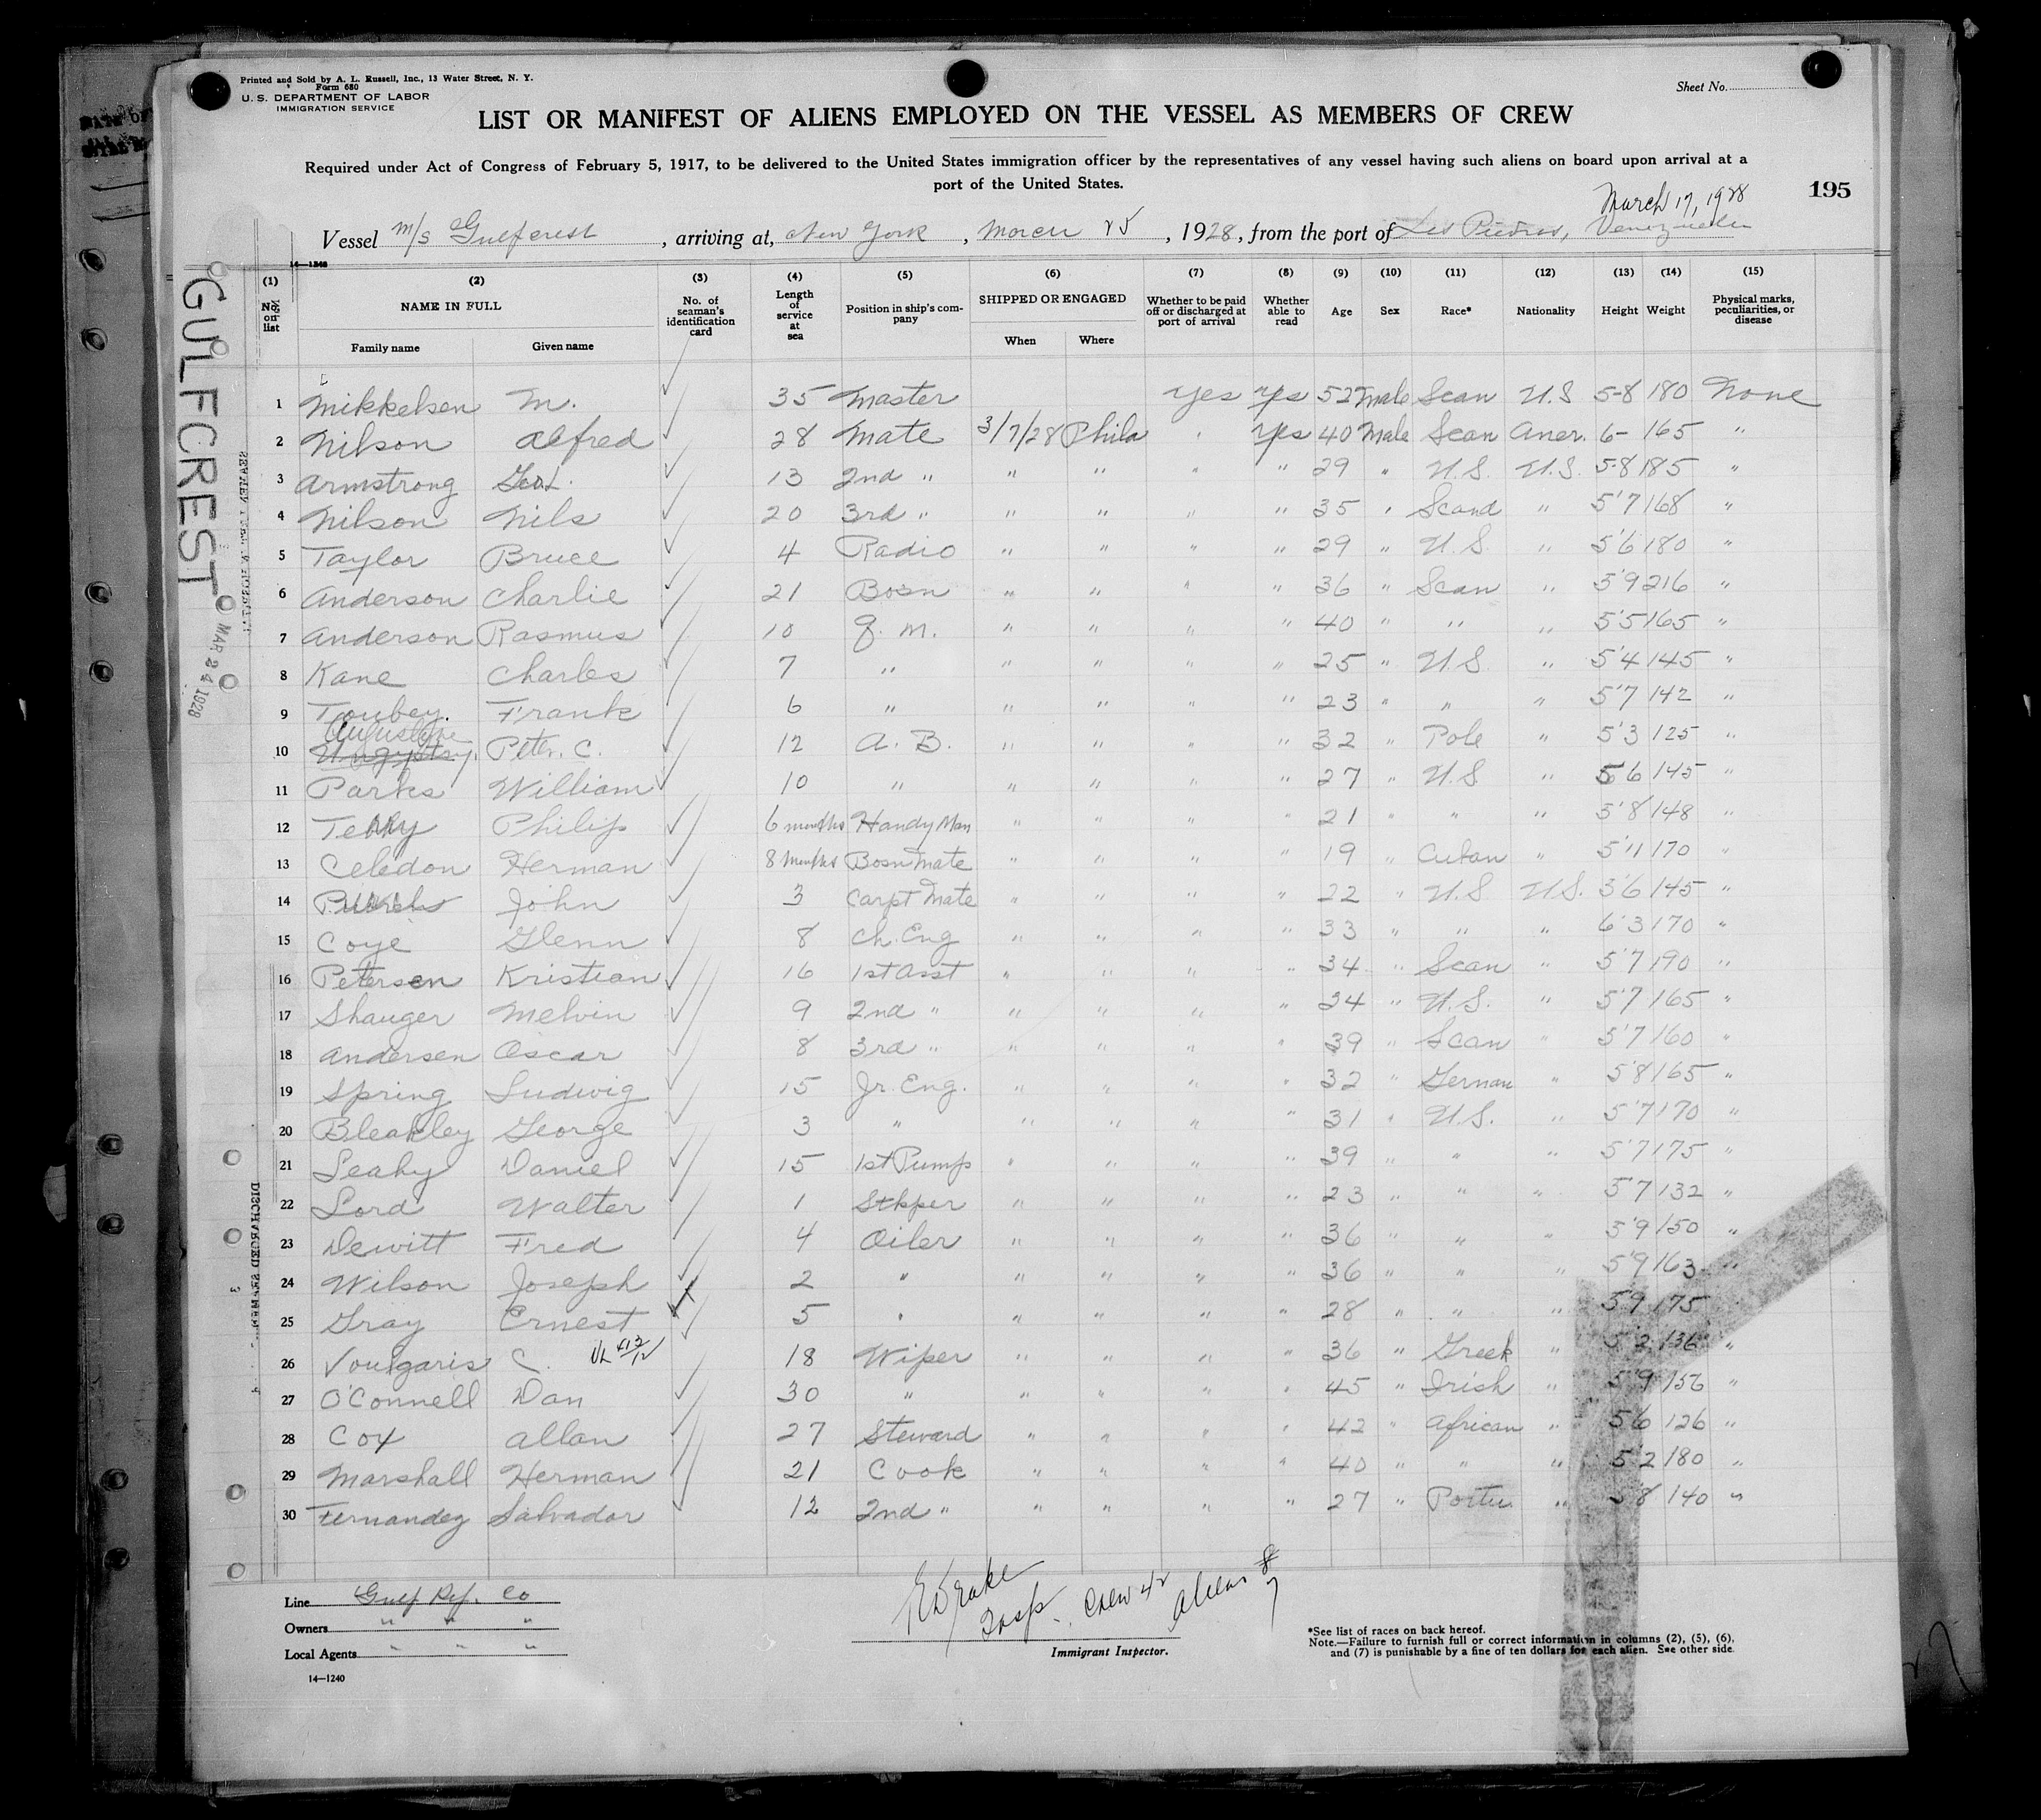 Printed and Sold by A. L. Russell, Inc., 13 Water Street, N. Y.
Form 680
U. S. DEPARTMENT OF LABOR
IMMIGRATION SERVICE
Sheet No.
LIST OR MANIFEST OF ALIENS EMPLOYED ON THE VESSEL AS MEMBERS OF CREW
Required under Act of Congress of February 5, 1917, to be delivered to the United States immigration officer by the representatives of any vessel having such aliens on board upon arrival at a
port of the United States.
195
March 17, 1928
Vessel M/S Gulfcrest, arriving at, New York, March 25, 1928, from the port of Las Piedras, Venezuela
14—1240
(1) (2) (3) (4) (5) (6) (7) (8) (9) (10) (11) (12) (13) (14) (15)
No. on list NAME IN FULL Family name Given name No. of seaman's identification card Length of service at sea Position in ship's company SHIPPED OR ENGAGED When Where Whether to be paid off or discharged at port of arrival Whether able to read Age Sex Race* Nationality Height Weight Physical marks, peculiarities, or disease
1 Mikkelsen M. 35 Master Yes Yes 52 Male Scan U.S 5-8 180 None
2 Nilson Alfred 28 Mate 3/7/28 Phila " Yes 40 Male Scan Amer. 6- 165 "
3 Armstrong 13 2nd " " " " " 29 " U.S. U.S. 5-8 185 "
4 Nilson Nils 20 3rd " " " " " 35 " Scand " 5'7 168 "
5 Taylor Bruce 4 Radio " " " " 29 " U.S. " 5'6 180 "
6 Anderson Charlie 21 Bosn " " " " 36 " Scan " 5'9 216 "
7 Anderson Rasmus 10 Q. M. " " " " 40 " " " 5'5 165 "
8 Kane Charles 7 " " " " " 25 " U.S. " 5'4 145 "
9 Toubey. Frank 6 " " " " " 23 " " " 5'7 142 "
10 Augustine Peter. C. 12 A. B. " " " " 32 " Pole " 5'3 125 "
11 Parks William 10 " " " " " 27 " U.S " 5 6 145 "
12 Terry Philip 6 months Handy Man " " " " 21 " " " 5'8 148 "
13 Celedon Herman 8 Months Bosn Mate " " " " 19 " Cuban " 5'11 170 "
14 John 3 Carpt Mate " " " " 22 " U.S U.S. 3'6 145 "
15 Coye Glenn 8 Ch. Eng " " " " 33 " " " 6'3 170 "
16 Petersen Kristian 16 1st Asst " " " " 34 " Scan " 5'7 190 "
17 Shauger Melvin 9 2nd " " " " " 34 " U.S. " 5'7 165 "
18 Andersen Oscar 8 3rd " " " " " 39 " Scan " 5'7 160 "
19 Spring Ludwig 15 Jr. Eng. " " " " 32 " German " 5'8 165 "
20 Bleakley George 3 " " " " " 31 " U.S. " 5'7 170 "
21 Leahy Daniel 15 1st Pump " " " " 39 " " " 5'7 175 "
22 Lord Walter 1 " " " " 23 " " " 5'7 132 "
23 Dewitt Fred 4 Oiler " " " " 36 " " " 5'9 150 "
24 Wilson Joseph 2 " " " " " 36 " " " 5'9 163 "
25 Gray Ernest 5 " " " " " 28 " " " 5'9 175 "
26 Voulgaris C. 18 Wiper " " " " 36 " Greek " 5'2 136 "
27 O'Connell Dan 30 " " " " " 45 " Irish " 5'9 156 "
28 Cox Allan 27 Steward " " " " 42 " African " 5'6 126 "
29 Marshall Herman 21 Cook " " " " 40 " " " 5'2 180 "
30 Fernandez Salvador 12 2nd " " " " " 27 " Portu " 5'8 140 "
GULFCREST
MAR 24 1928
DISCHARGED SEAMEN
Line Gulf Ref. Co
Owners " " "
Local Agents " " "
14—1240
Drake
Insp. Crew 42 Aliens 8
7
Immigrant Inspector.
*See list of races on back hereof.
Note.—Failure to furnish full or correct information in columns (2), (5), (6),
and (7) is punishable by a fine of ten dollars for each alien. See other side.